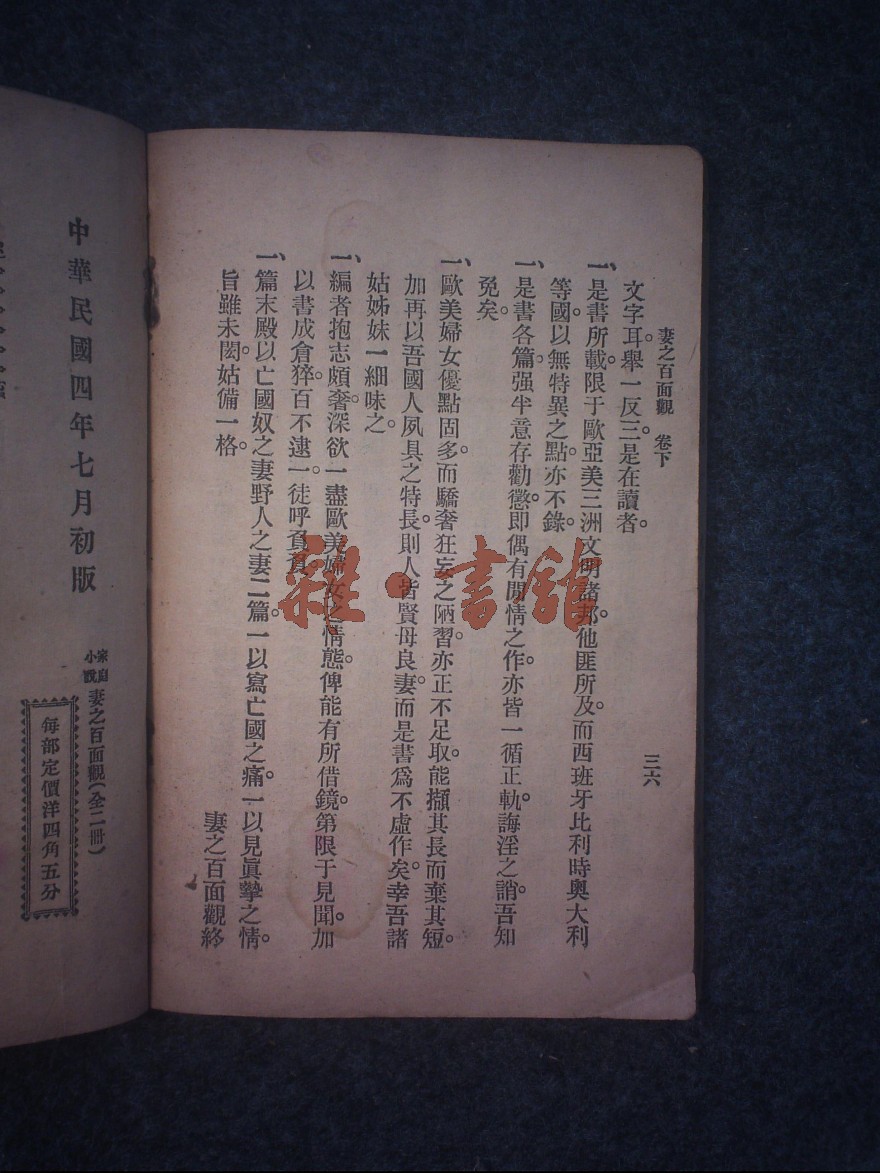 妻之百面觀　卷下
三六
文字耳。舉一反三。是在讀者。
一、是書所載。限于歐亞美三洲文明諸邦。他匪所及。而西班牙比利時奧大利
等國。以無特異之點。亦不錄。
一、是書各篇。强半意存勸懲。即偶有閒情之作。亦皆一循正軌。誨淫之誚。吾知
免矣。
一、歐美婦女優點固多。而驕奢狂妄之陋習。亦正不足取。能擷其長而棄其短。
加再以吾國人夙具之特長。則人皆賢母良妻。而是書爲不虛作矣。幸吾諸
姑姊妹一細味之。
一、編者抱志頗奢。深欲一盡歐美婦女之情態。俾能有所借鏡。第限于見聞。加
以書成倉猝。百不逮一。徒呼負負。
一、篇末殿以亡國奴之妻野人之妻二篇。一以寫亡國之痛。一以見眞摯之情。
旨雖未閎。姑備一格。
妻之百面觀終
雜·書館
中華民國四年七月初版
家庭小說 妻之百面觀（全二冊）
每部定價洋四角五分